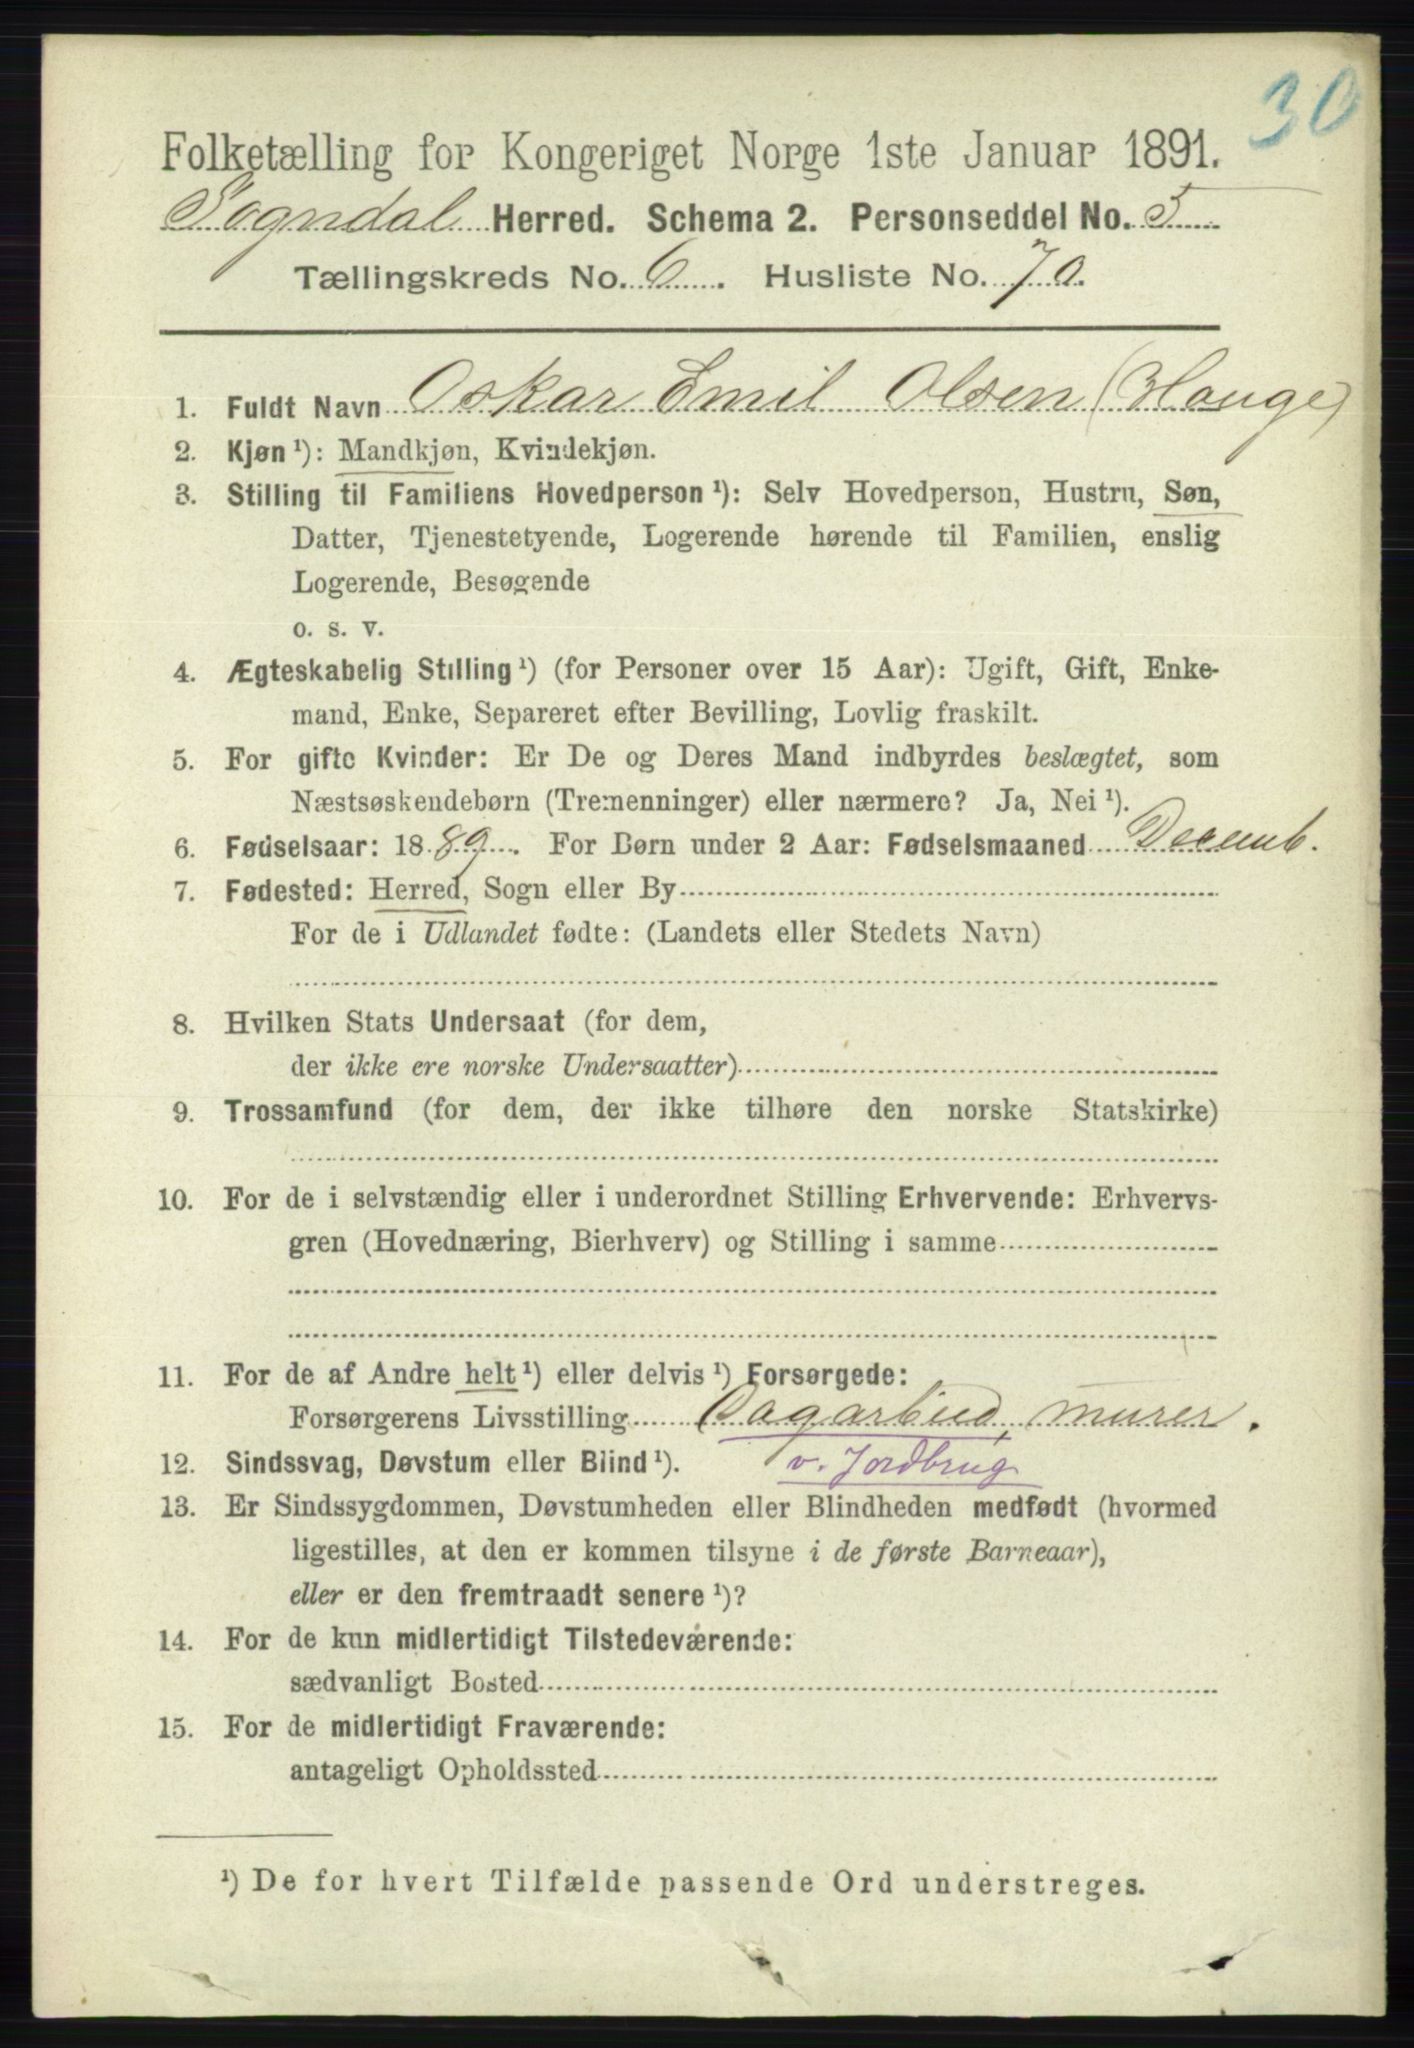 30
Folketælling for Kongeriget Norge 1ste Januar 1891.
Sogndal Herred. Schema 2. Personseddel No. 5
Tællingskreds No. 6. Husliste No. 70.
1. Fuldt Navn Oskar Emil Olsen (Hauge)
2. Kjøn ¹): Mandkjøn, Kvindekjøn.
3. Stilling til Familiens Hovedperson ¹): Selv Hovedperson, Hustru, Søn,
Datter, Tjenestetyende, Logerende hørende til Familien, enslig
Logerende, Besøgende
o. s. v.
4. Ægteskabelig Stilling ¹) (for Personer over 15 Aar): Ugift, Gift, Enke-
mand, Enke, Separeret efter Bevilling, Lovlig fraskilt.
5. For gifte Kvinder: Er De og Deres Mand indbyrdes beslægtet, som
Næstsøskendebørn (Tremenninger) eller nærmere? Ja, Nei ¹).
6. Fødselsaar: 1889. For Børn under 2 Aar: Fødselsmaaned Decemb.
7. Fødested: Herred, Sogn eller By
For de i Udlandet fødte: (Landets eller Stedets Navn)
8. Hvilken Stats Undersaat (for dem,
der ikke ere norske Undersaatter)
9. Trossamfund (for dem, der ikke tilhøre den norske Statskirke)
10. For de i selvstændig eller i underordnet Stilling Erhvervende: Erhvervs-
gren (Hovednæring, Bierhverv) og Stilling i samme
11. For de af Andre helt ¹) eller delvis ¹) Forsørgede:
Forsørgerens Livsstilling Dagarbeid, murer.
12. Sindssvag, Døvstum eller Blind ¹). v. Jordbrug
13. Er Sindssygdommen, Døvstumheden eller Blindheden medfødt (hvormed
ligestilles, at den er kommen tilsyne i de første Barneaar),
eller er den fremtraadt senere ¹)?
14. For de kun midlertidigt Tilstedeværende:
sædvanligt Bosted
15. For de midlertidigt Fraværende:
antageligt Opholdssted
¹) De for hvert Tilfælde passende Ord understreges.